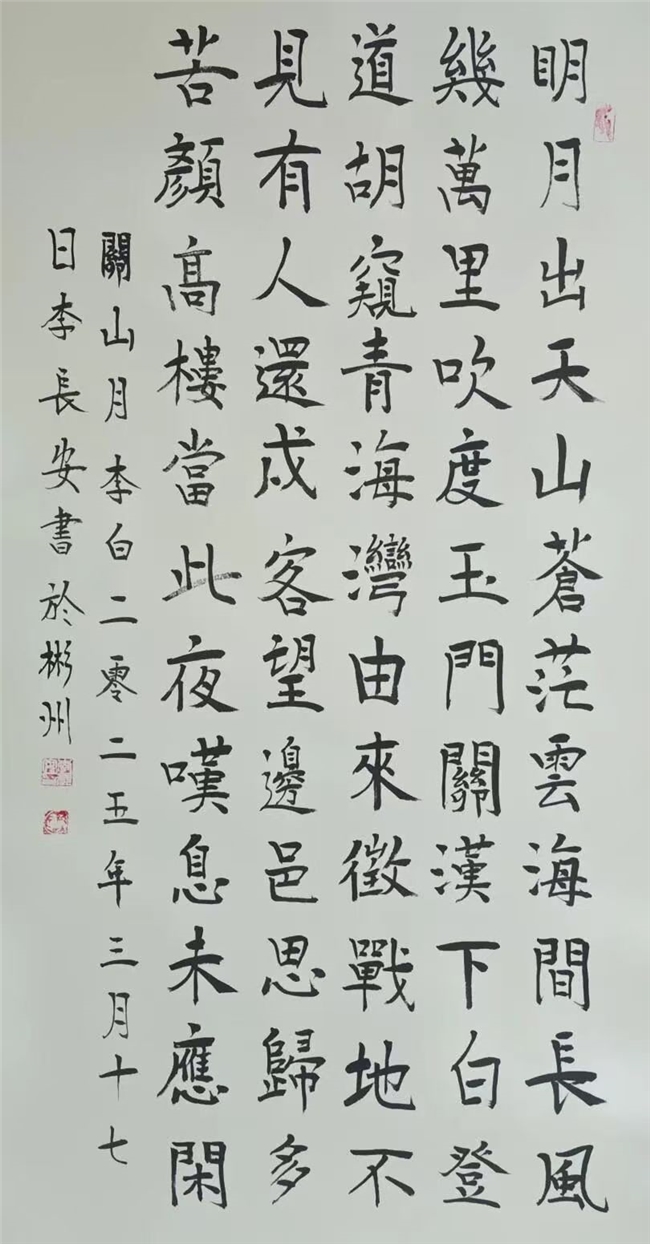 明月出天山蒼茫雲海間長風
幾萬里吹度玉門關漢下白登
道胡窺青海灣由來徵戰地不
見有人還戍客望邊邑思歸多
苦顏高樓當此夜嘆息未應閑
關山月李白二零二五年三月十七
日李長安書於彬州